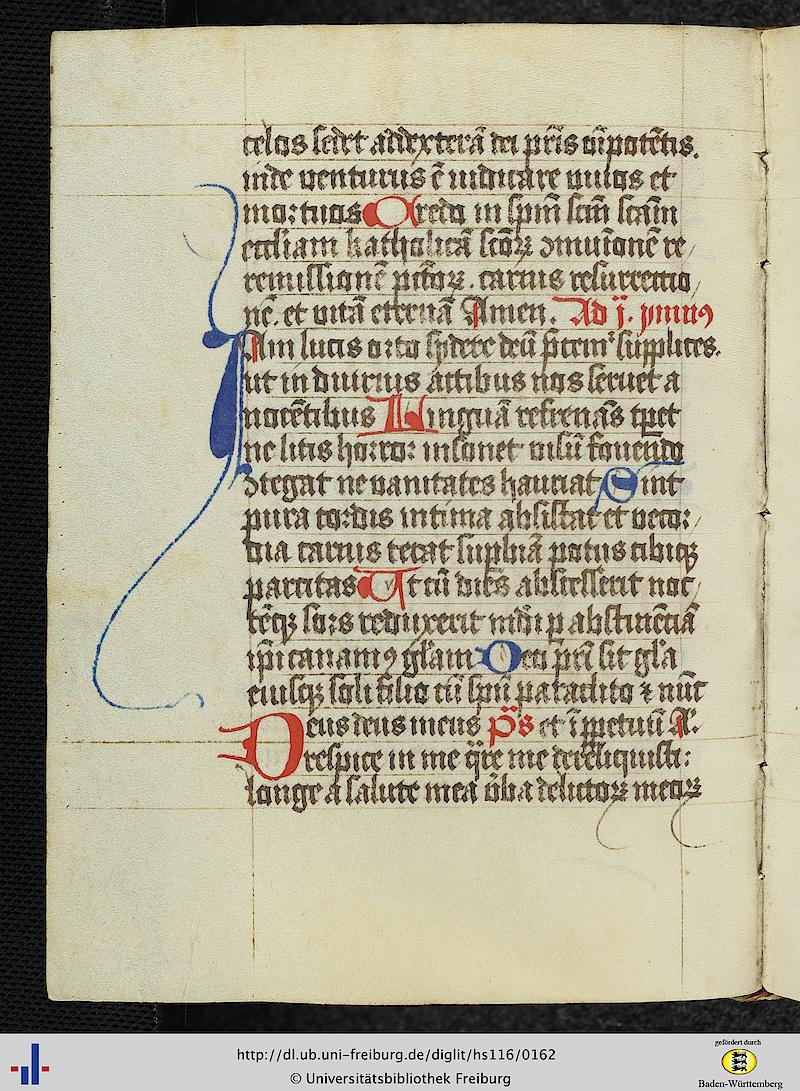 celos sedet addexterā dei pr̄is om̄ipotētis.
inde venturus ē iudicare viuos et
mortuos Credo in spm̄ scm̄ scām
eccliam katholicā scōꝝ ↄmuionē re
remissionē pctōꝝ. carnis resurrectio
nē. et vitā eternā Amen. Ad j. ymnus
Iam lucis orto sydere deū p̄cemᷣ supplices.
ut in diurnis actibus nos seruet a
nocētibus Linguā refrenās tꝑet
ne litis horror insonet visū fouendo
ↄtegat ne vanitates hauriat Sint
pura cordis intima absistat et vecor
dia carnis terat supbiā potus cibiqꝫ
parcitas Ut cū dies abscesserit noc
tēqꝫ sors reduxerit mūdi p abstinētiā
ip̄i canamꝰ glām Deo pr̄i sit glā
eiusqꝫ soli filio cū spū paraclito ⁊ nūc
Deus deus meus p̄s et ī ꝑpetuū A.
respice in me qͣre me dereliquisti:
longe a salute mea vba delictoꝝ meoꝝ
http://dl.ub.uni-freiburg.de/diglit/hs116/0162
© Universitätsbibliothek Freiburg
gefördert durch
Baden-Württemberg